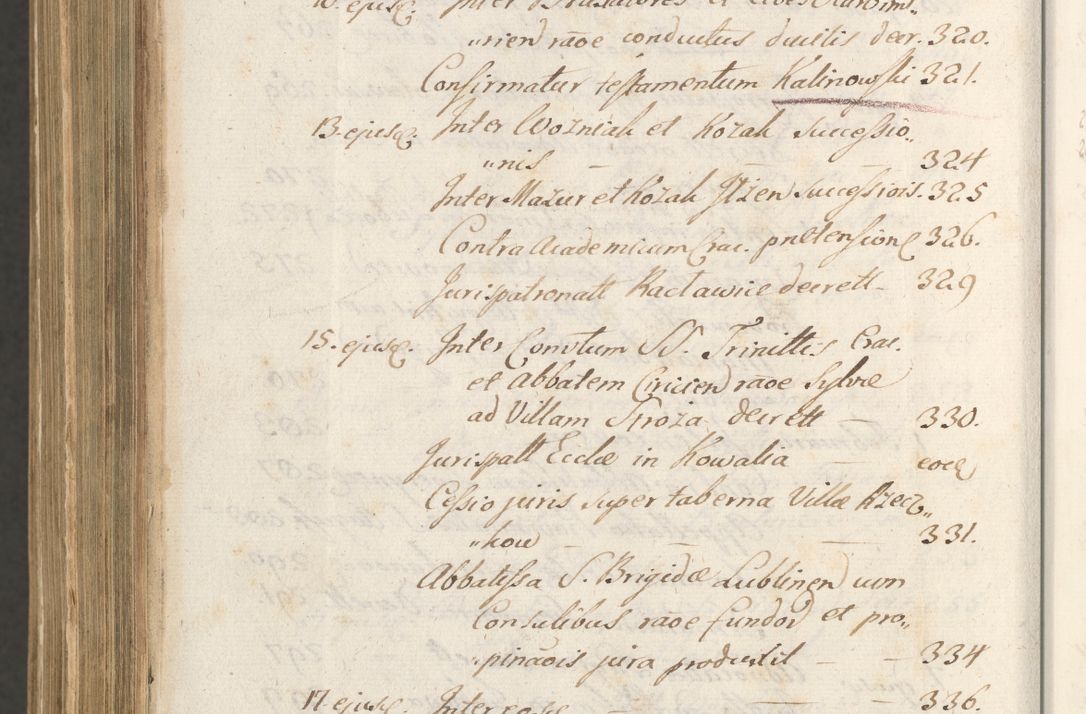 10. ejusq. Inter Brasiatores et Cives
„rien) raoe conductus ductis decr. 320.
Confirmatur testamentum Kalinowski 321.
13. ejusq. Inter Wozniak et Kozak successio„
„nis — — 324
Inter Mazur et Kozak Itzen) successiois. 325
Contra Academicum Crac. pnetensione 326.
Jurispatronatt Racławice decrett — 329
15. ejusq. Inter Convtum SS. Trinittis Crac.
et Abbatem Cricien) raoe sylvæ
ad Villam Stroza, decrett — 330.
Jurispatt Ecclæ in Kowalia — eode
Cessio juris super taberna Villæ Rzecz„
„kow — — 331.
Abbatissa S. Brigidæ Lublinen) cum
Consulibus raoe fundor) et pro„
„pinaois jura productit — — 334
17. ejusq. Inter — — 336.